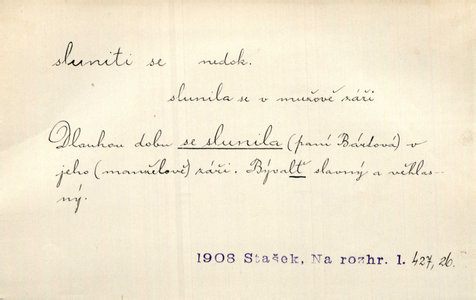 sluniti se nedok.
slunila se v mužově záři
Dlouhou dobu se slunila (paní Bártová) v
jeho (manželově) záři. Bývalť slavný a věhlas-
ný.
1908 Stašek, Na rozhr. 1. 427, 26.